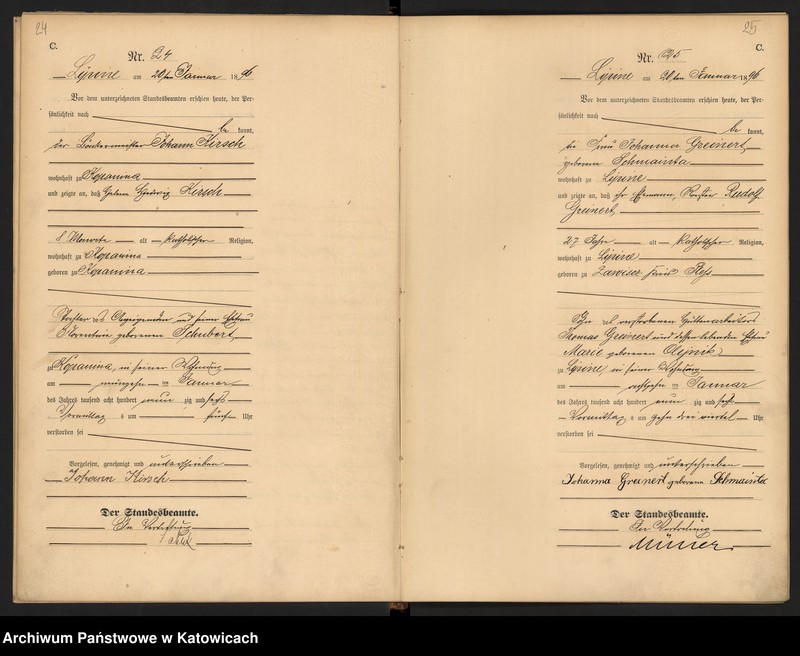 24
C.
Nr. 24
Lipine am 20ten Januar 1896
Vor dem unterzeichneten Standesbeamten erschien heute, der Per-
sönlichkeit nach
be kannt,
der Johann Kirsch
wohnhaft zu Kopanina
und zeigte an, daß Hedwig Kirsch
8 Monate alt katholischer Religion,
wohnhaft zu Kopanina
geboren zu Kopanina
Tochter des Anzeigenden und seiner Ehefrau
Florentine geborenen Schubert
zu Kopanina, in seiner Wohnung
am neunzehn ten Januar
des Jahres tausend acht hundert neun zig und sechs
Vormittag s um fünf Uhr
verstorben sei
Vorgelesen, genehmigt und unterschrieben
Johann Kirsch
Der Standesbeamte.
In Vertretung
25
C.
Nr. 25
Lipine am 20ten Januar 1896
Vor dem unterzeichneten Standesbeamten erschien heute, der Per-
sönlichkeit nach
be kannt,
die Frau Johanna Greinert
geborene Schmainta
wohnhaft zu Lipine
und zeigte an, daß ihr Ehemann, Rudolf
Greinert,
27 Jahre alt katholischer Religion,
wohnhaft zu Lipine
geboren zu Kreis
Sohn des verstorbenen Hüttenarbeiters
Thomas Greinert und dessen lebenden Ehefrau
Marie geborenen Olejnik
zu Lipine, in seiner Wohnung
am Januar
des Jahres tausend acht hundert neun zig und sechs
Vormittag s um zehn drei viertel Uhr
verstorben sei
Vorgelesen, genehmigt und unterschrieben
Johanna Greinert geborene Schmainta
Der Standesbeamte.
In Vertretung
Müller
Archiwum Państwowe w Katowicach